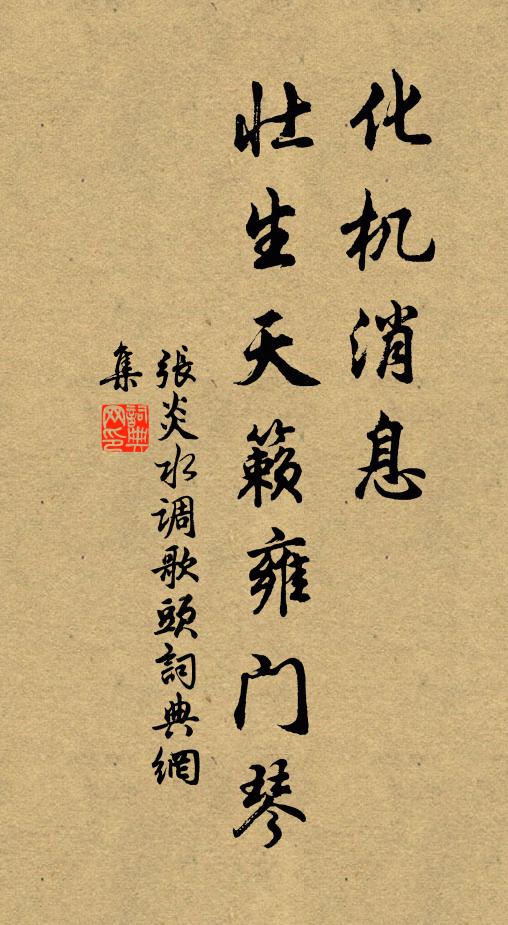 化机消息
壮生天籁雍门琴
張炎水调歌頭詞典網
集
詞典网印